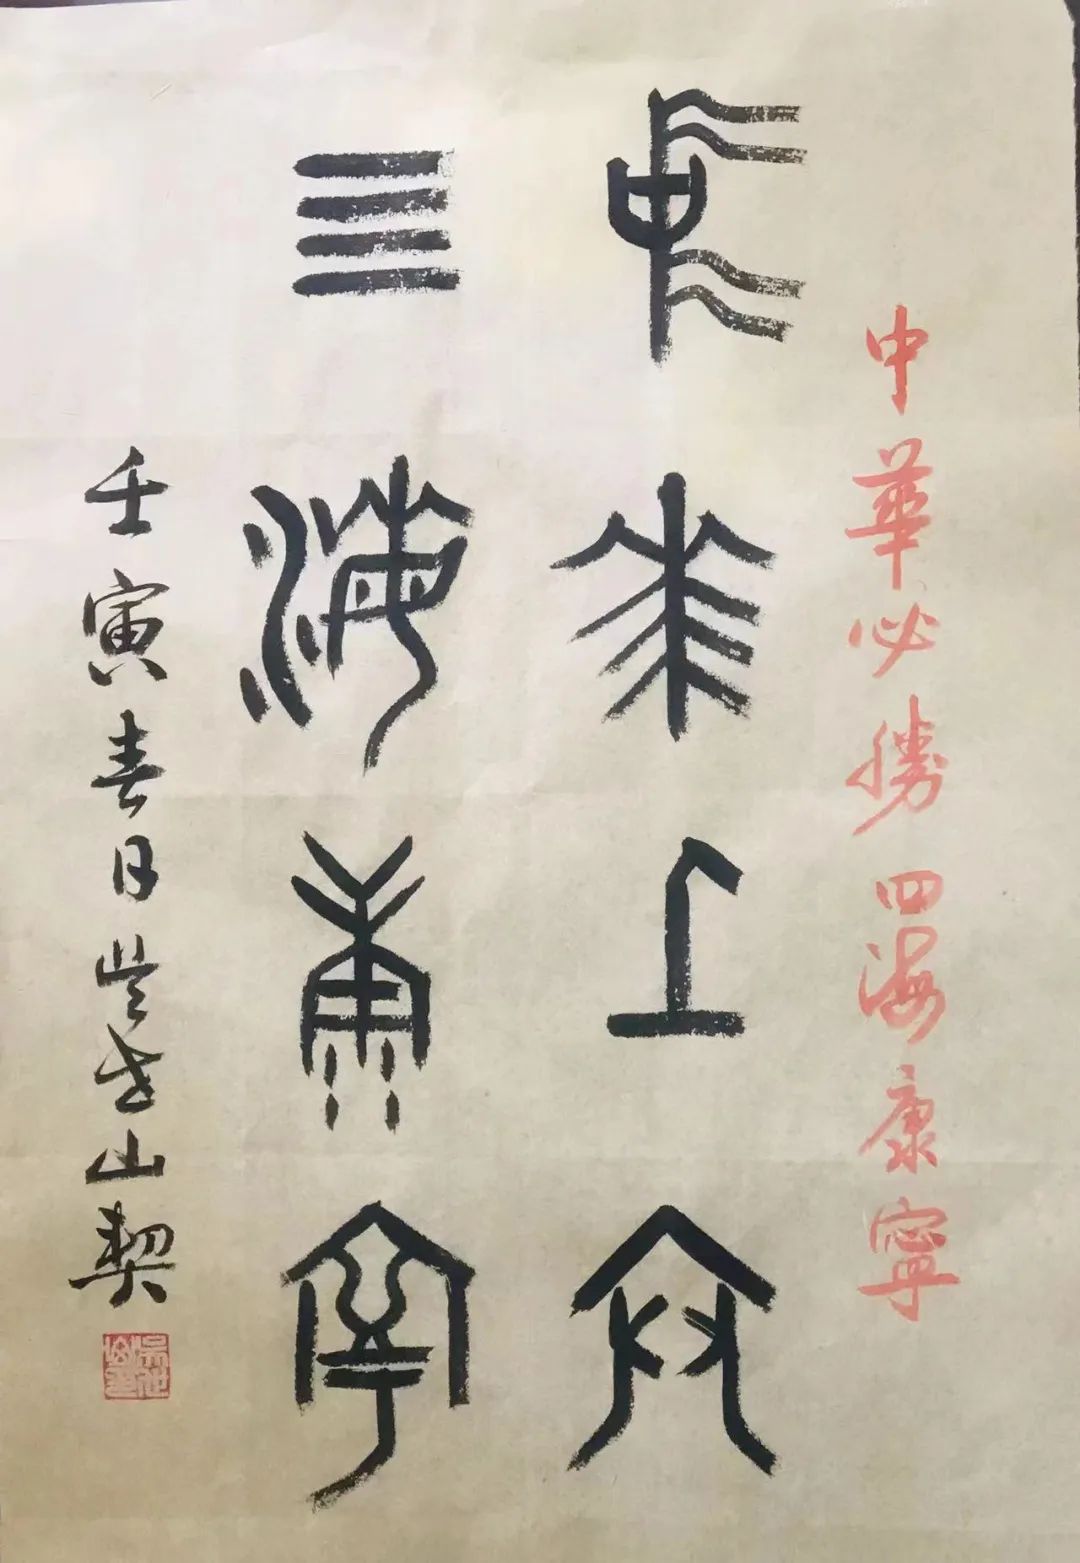 中華必勝 四海康寧
中華
四海康寧
壬寅春日吳世山契